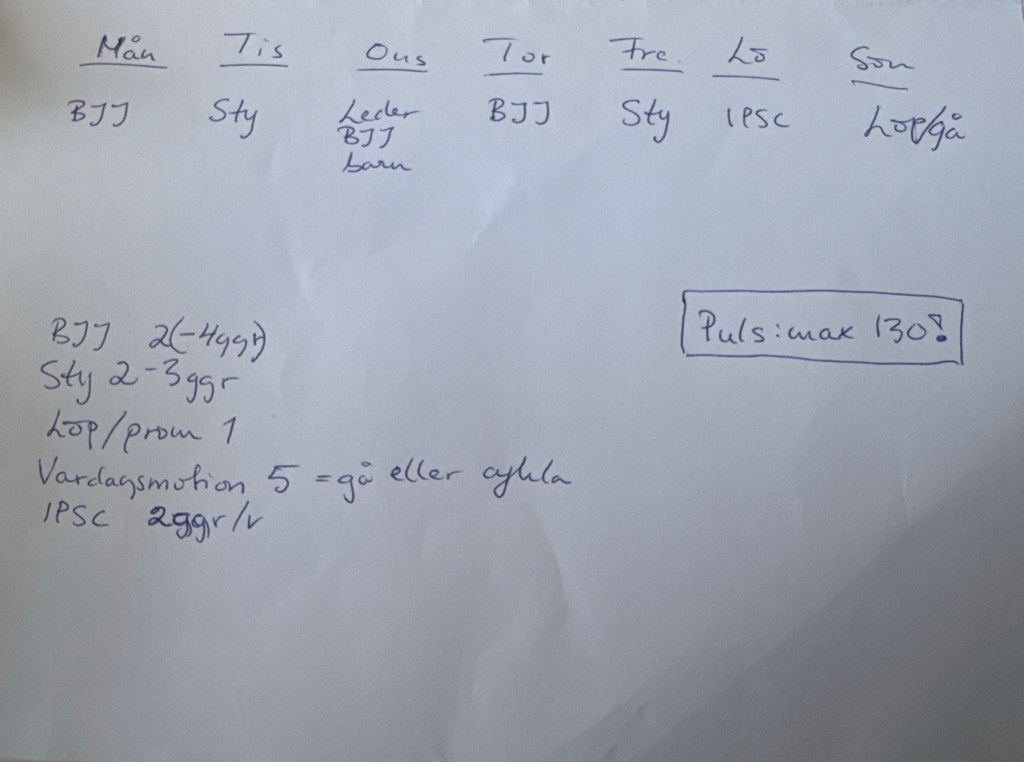 Mån Tis Ons Tor Fre. Lö Sön
BJJ Sty Leder BJJ Sty IPSC Löp/gå
BJJ
barn
Puls: max 130!
BJJ 2(-4ggr)
Sty 2-3ggr
Löp/prom 1
Vardagsmotion 5 = gå eller cykla
IPSC 2ggr/v